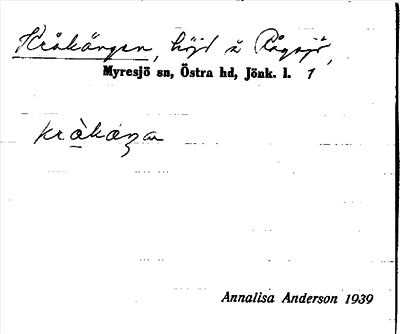 Kråkängen, höjd å Rågsjö,
Myresjö sn, Östra hd, Jönk. l. 1
kråkäŋən
Annalisa Anderson 1939